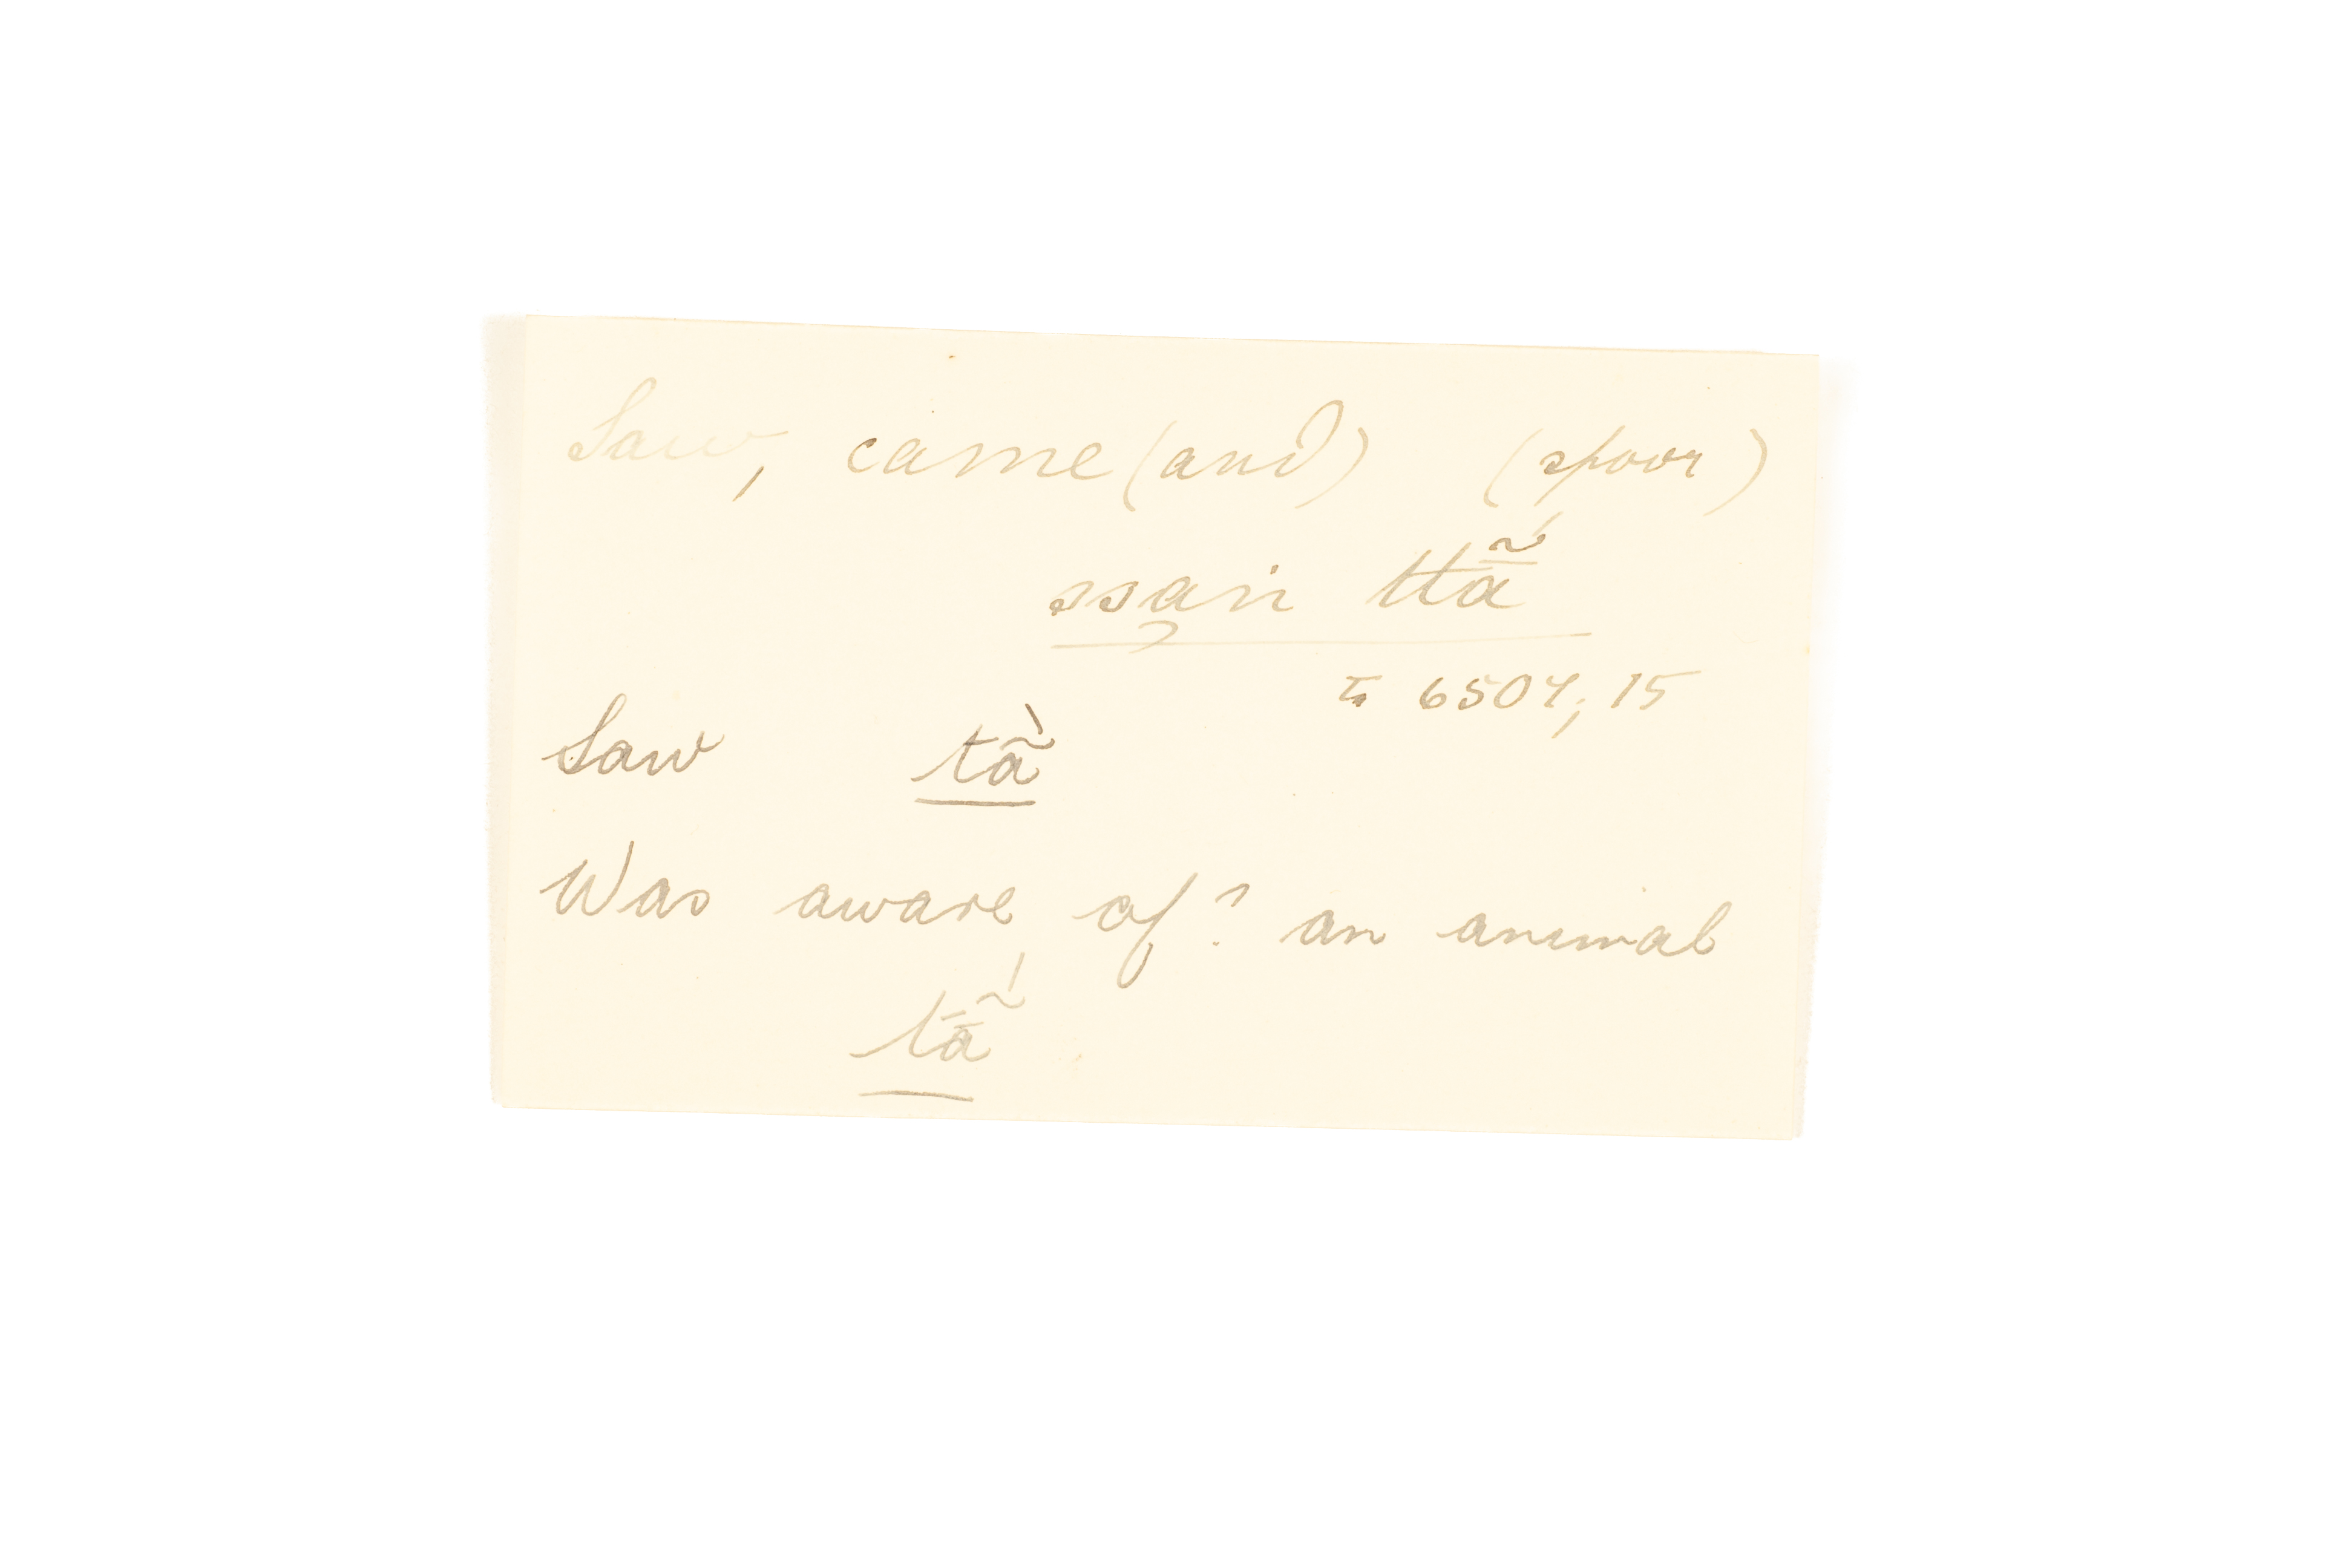 Saw, came (and) (spoor)
ssa̦n ttā̃́
6507, 15
Saw tã̀
Was aware of? an animal
tā̃́